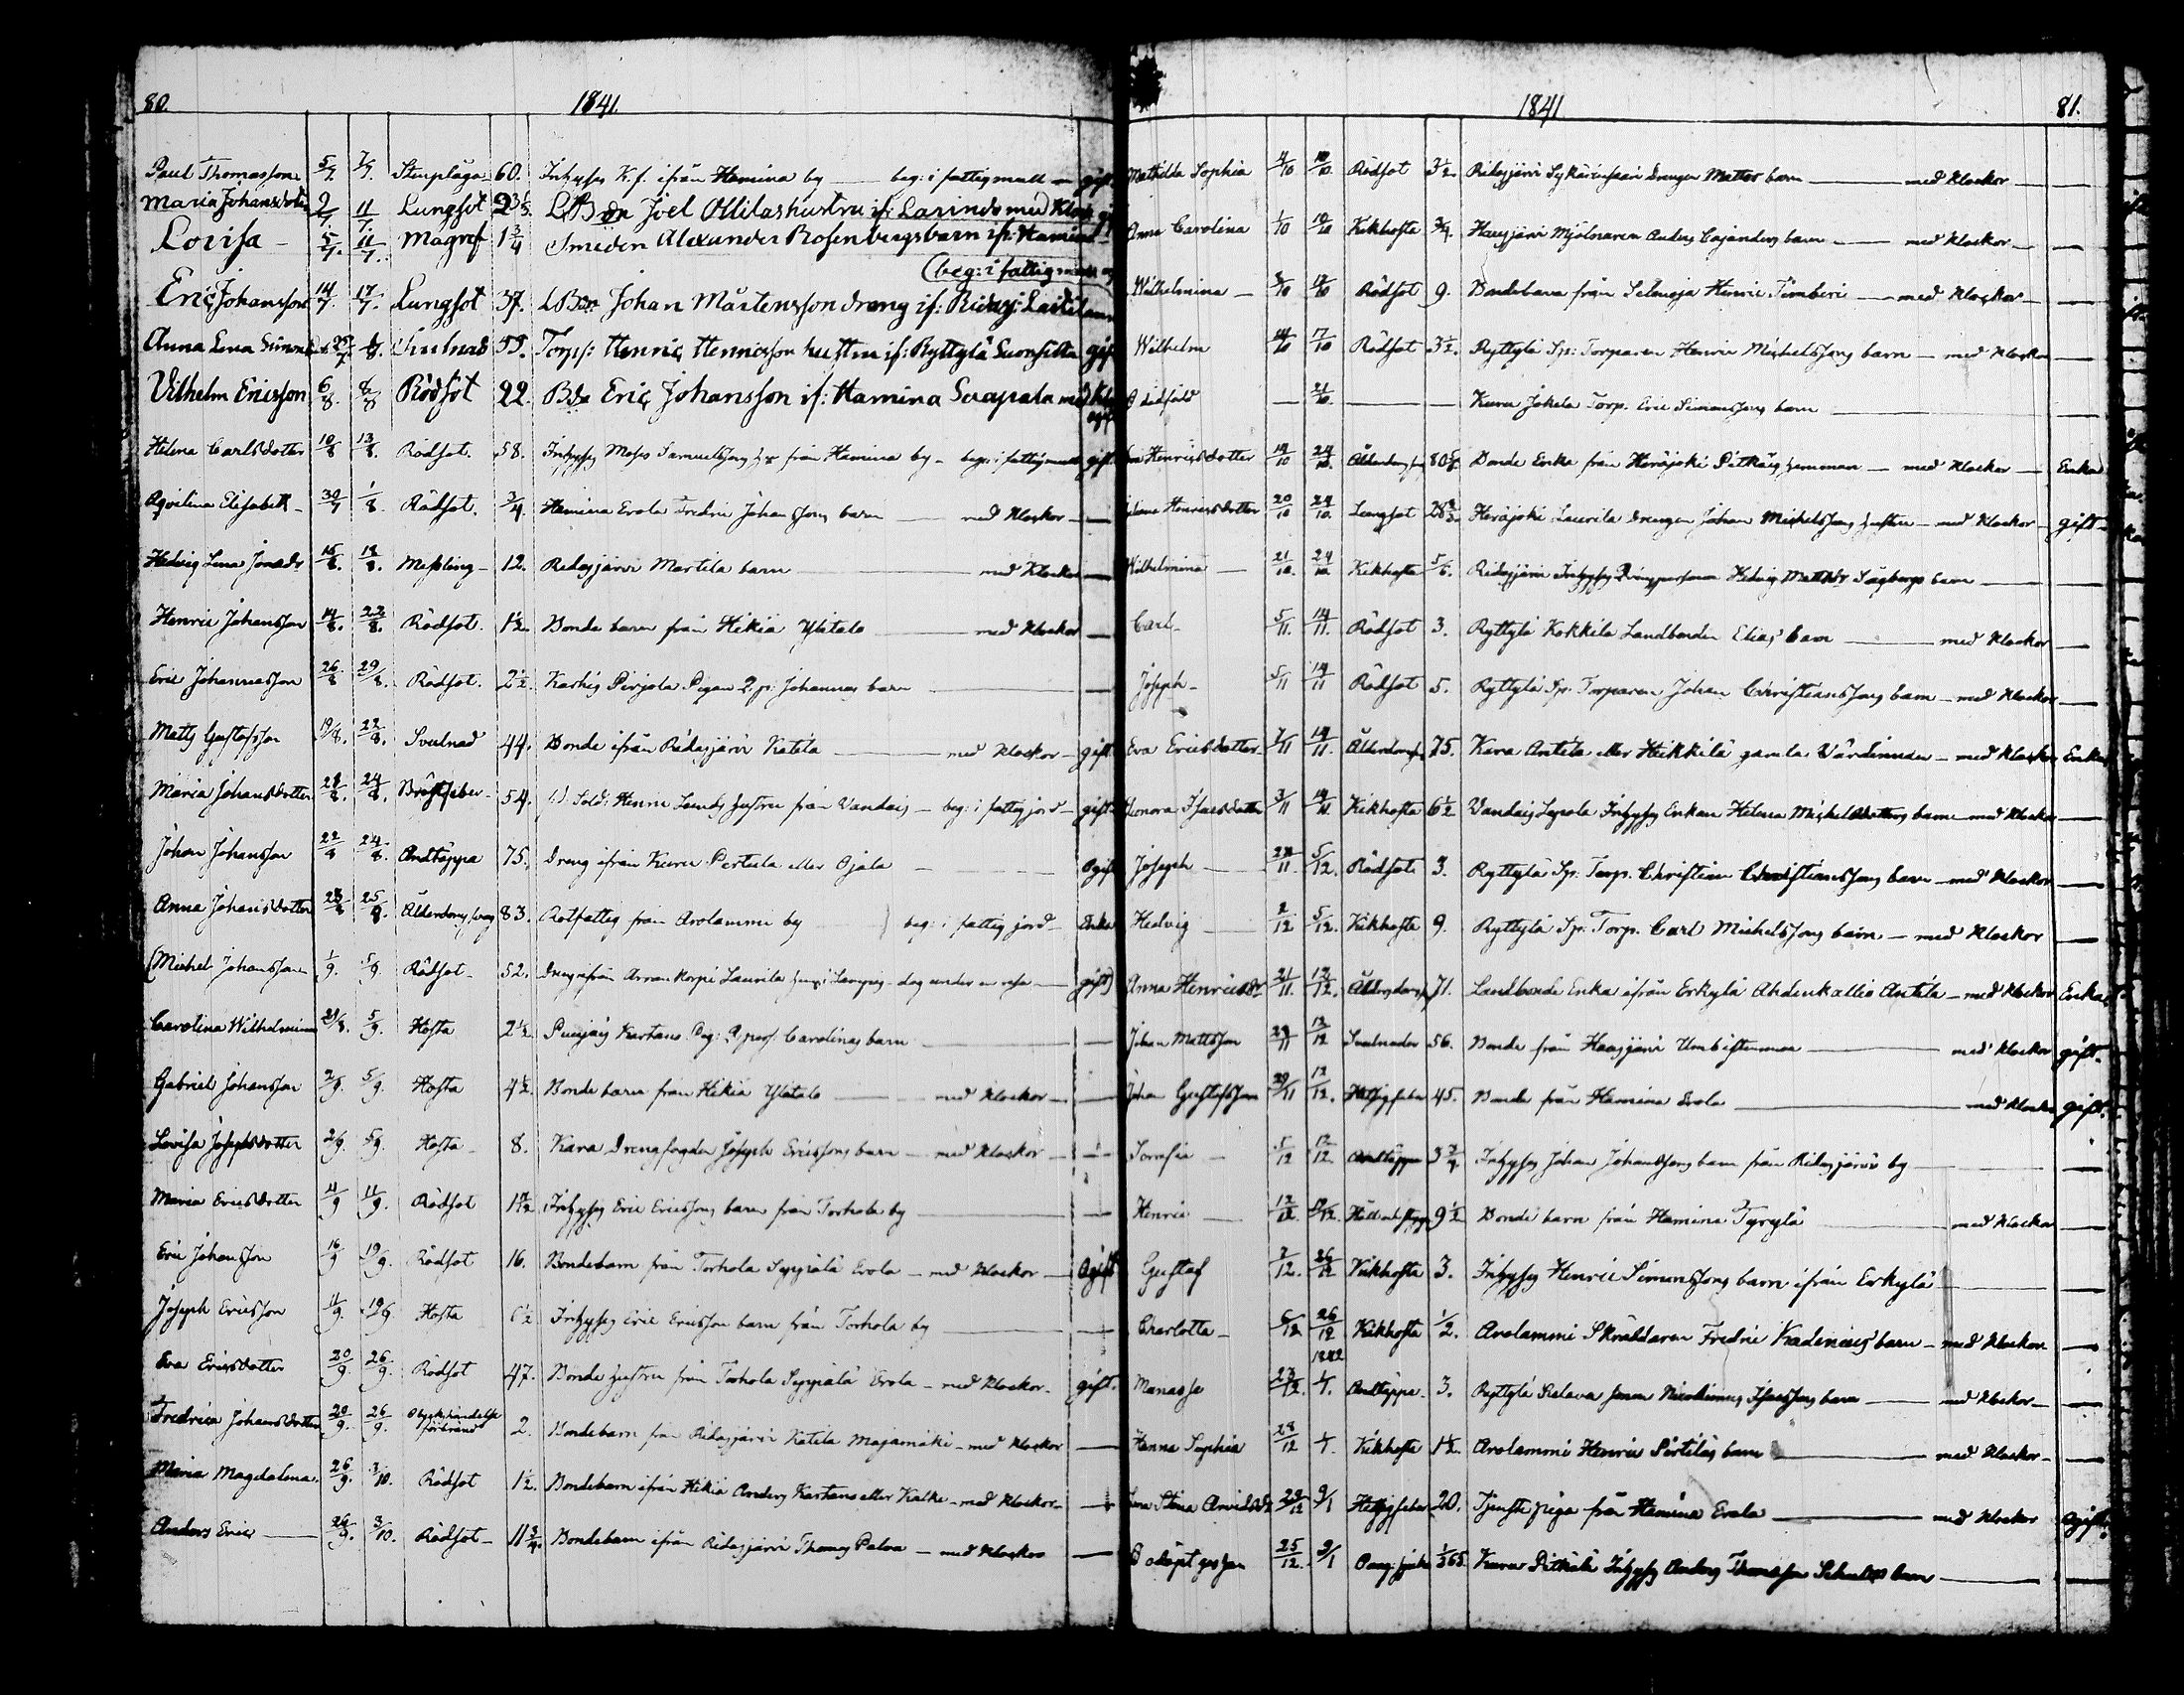 80. 1841.
Paul Thomasson 5/7. 7/7. Stenplåga 60. Inhyses K.f. ifrån Hamina by — beg: i fattigmull — gift
Maria Johansdotter 2/7. 11/7. Lungsot LBdn Joel Ollilas hustru if: Larinds med Klock
Lovisa — 5/7. 11/7. Magref 1 3/4 Smeden Alexander Rosenbergs barn if: Hamina
(beg: i fattigmull
Eric Johansson 14/7. 17/7. Lungsot 37. LBdn Johan Mårtensson dreng if: Ridasj:
Anna Lena Simm 55. Torp: Henric Henricsson hustru if: Ryttylä gift
Vilhelm Ericsson 6/8. 8/8 Rödsot 22. Bdn Eric Johansson if: Hamina Saapala med Klo
Helena Carlsdotter 10/8 13/8. Rödsot. 58. Inhyses Moses Samuelssons h:u från Hamina by — beg: i fattigmull gift
Aqvilina Elisabeth — 30/7 1/8. Rödsot. 3/4. Hamina Erola Fredric Johanssons barn — med Klockor —
Hedvig Lena Jonasdr 15/8. 18/8. Messling — 12. Ridasjärvi Martila barn — med Klockor —
Henric Johansson 14/8. 22/8. Rödsot. 1 1/2. Bonde barn från Hikiä Ylitalo — med Klockor —
Eric Johannesson 26/8 29/8. Rödsot. 2 1/2. Karhis Pirjola Pigan Johannas barn —
Matts Gustafsson 19/8. 22/8. Svulnad 44. Bonde ifrån Ridasjärvi Katila — med Klockor — gift
Maria Johansdotter 24/8. Bröstfeber — 54. Sold: Henric Lunds hustru från Vandais — beg: i fattigjord — gift.
Johan Johansson 22/8 24/8. Andtäppa 75. Dreng ifrån Karu Pertula eller Ojala — Ogift
Anna Johansdotter 23/8 25/8. Ålderdomssvag 83. Rotfattig från Arolammi by — beg: i fattigjord — Enka
(Michel Johansson 1/9. 5/9. Rödsot — 52. Dreng ifrån Arrankorpi Laurila — gift)
Carolina Wilhelmina 31/8. 5/9. Hosta 2 1/2. Puujärvi Kartano Pig: Carolinas barn —
Gabriel Johansson 2/9. 5/9. Hosta 4 1/2. Bonde barn från Hikiä Ylitalo — med Klockor —
Lovisa Josephsdotter 2/9. 5/9. Hosta — 8. Kara Drengfogden Joseph Ericssons barn — med Klockor —
Maria Ericsdotter 4/9 11/9. Rödsot Inhyses Eric Ericssons barn från Torhola by —
Eric Johansson 16/9 19/9. Rödsot 16. Bondebarn från Torhola Seppälä Erola — med Klockor — Ogift
Joseph Ericsson 11/9. 19/9 Hosta 6 1/2 Inhyses Eric Ericsson barn från Torhola by —
Eva Ericsdotter 20/9. 26/9. Rödsot 47. Bonde hustru från Torhola Seppälä Erola — med Klockor. gift.
Fredrica Johansdotter 20/9. 26/9. Olyckshändelse förbränd 2. Bondebarn från Ridasjärvi Katila Majamäki — med Klockor —
Maria Magdalena. 26/9. 3/10. Rödsot 1 1/2. Bondebarn ifrån Hikiä Anders Kartano eller Kalke — med Klockor —
Anders Eric — 26/9. 3/10. Rödsot — 11 3/4. Bondebarn ifrån Ridasjärvi Thomas Palva — med Klockor —
1841 81.
Mathilda Sophia 4/10 10/10. Rödsot 3 1/2. Ridasjärvi drengen Matts barn — med Klockor —
Anna Carolina 1/10 10/10 Kikhosta 3/4. Hausjärvi Mjölnaren Anders Cajanders barn — med Klockor —
Wilhelmina — 8/10 12/10 Rödsot 9. Bondebarn från Selänoja Henric Timberi — med Klockor —
Wilhelm 14/10 17/10 Rödsot 3 1/2. Ryttylä Sp: Torparen Henric Michelssons barn — med Klockor —
Ödödd — 21/10. — Karu Jokela Torp. Eric Simonssons barn —
Henricsdotter 19/10 24/10. Ålderdoms 80 Bonde Enka från Herajoki Pitkäis hemman — med Klockor — Enka
Henricsdotter 20/10 24/10. Lungsot Herajoki Laurila drengen Johan Michelssons hustru — med Klockor — gift —
Wilhelmina — 21/10. 24/10. Kikhosta 5/6. Ridasjärvi Inhyses Hedvig Mattsdr barn —
Carl — 5/11. 14/11. Rödsot 3. Ryttylä Kokkila Landbonden Elias barn — med Klockor —
Joseph — 5/11 14/11 Rödsot 5. Ryttylä Sp: Torparen Johan Christianssons barn — med Klockor —
Eva Ericsdotter 7/11 14/11. Ålderdoms 75. Kara Antila eller Heikkilä gamla Värdinnan — med Klockor Enka
Eleonora Isacsdotter 3/11 14/11. Kikhosta 6 1/2 Vandais Lepola Inhyses Enkan Helena Michelsdotters barn — med Klockor —
Joseph — 28/11. 5/12. Rödsot 3. Ryttylä Sp: Torp. Christian Christianssons barn — med Klockor —
Hedvig — 2/12 5/12. Kikhosta 9. Ryttylä Sp: Torp. Carl Michelssons barn — med Klockor —
Anna Henricsdr 21/11. 12/12. Ålderdoms 71. Landbonde Enka ifrån Erkylä Ahdenkallio Antila — med Klockor Enka
Johan Mattsson 29/11 12/12 Svulnader 56. Bonde från Hausjärvi Umbistenmaa — med Klockor gift.
Johan Gustafsson 29/11 12/12. Hetsigfeber 45. Bonde från Hamina Erola — med Klockor gift.
Serafia — 5/12 12/12. Andtäppa 3 3/4 Inhyses Johan Johanssons barn från Ridasjärvi by —
Henric — 12/12. 19/12. Håll och stygn 9 1/2 Bonde barn från Hamina Tyrylä — med Klockor —
Gustaf 7/12. 26/12 Kikhosta 3. Inhyses Henric Simonssons barn ifrån Erkylä —
Charlotta — 6/12 26/12 Kikhosta 1/2. Arolammi Skräddaren Fredric Kadenius barn — med Klockor —
1842
Manasse 23/12. 1/1. Andtäppa — 3. Ryttylä Salava Nicodemus Isacssons barn — med Klockor —
Hanna Sophia 28/12 1/1. Kikhosta 1 1/2. Arolammi Henric Pertilas barn — med Klockor —
Stina Arvidsdr 29/12 9/1 Hetsigfeber 20. Tjenstepiga från Hamina Erola — med Klockor Ogift.
Odöpt gosson 25/12. 9/1 1/365. Karu Pitkälä Inhyses Anders Thomasson barn —